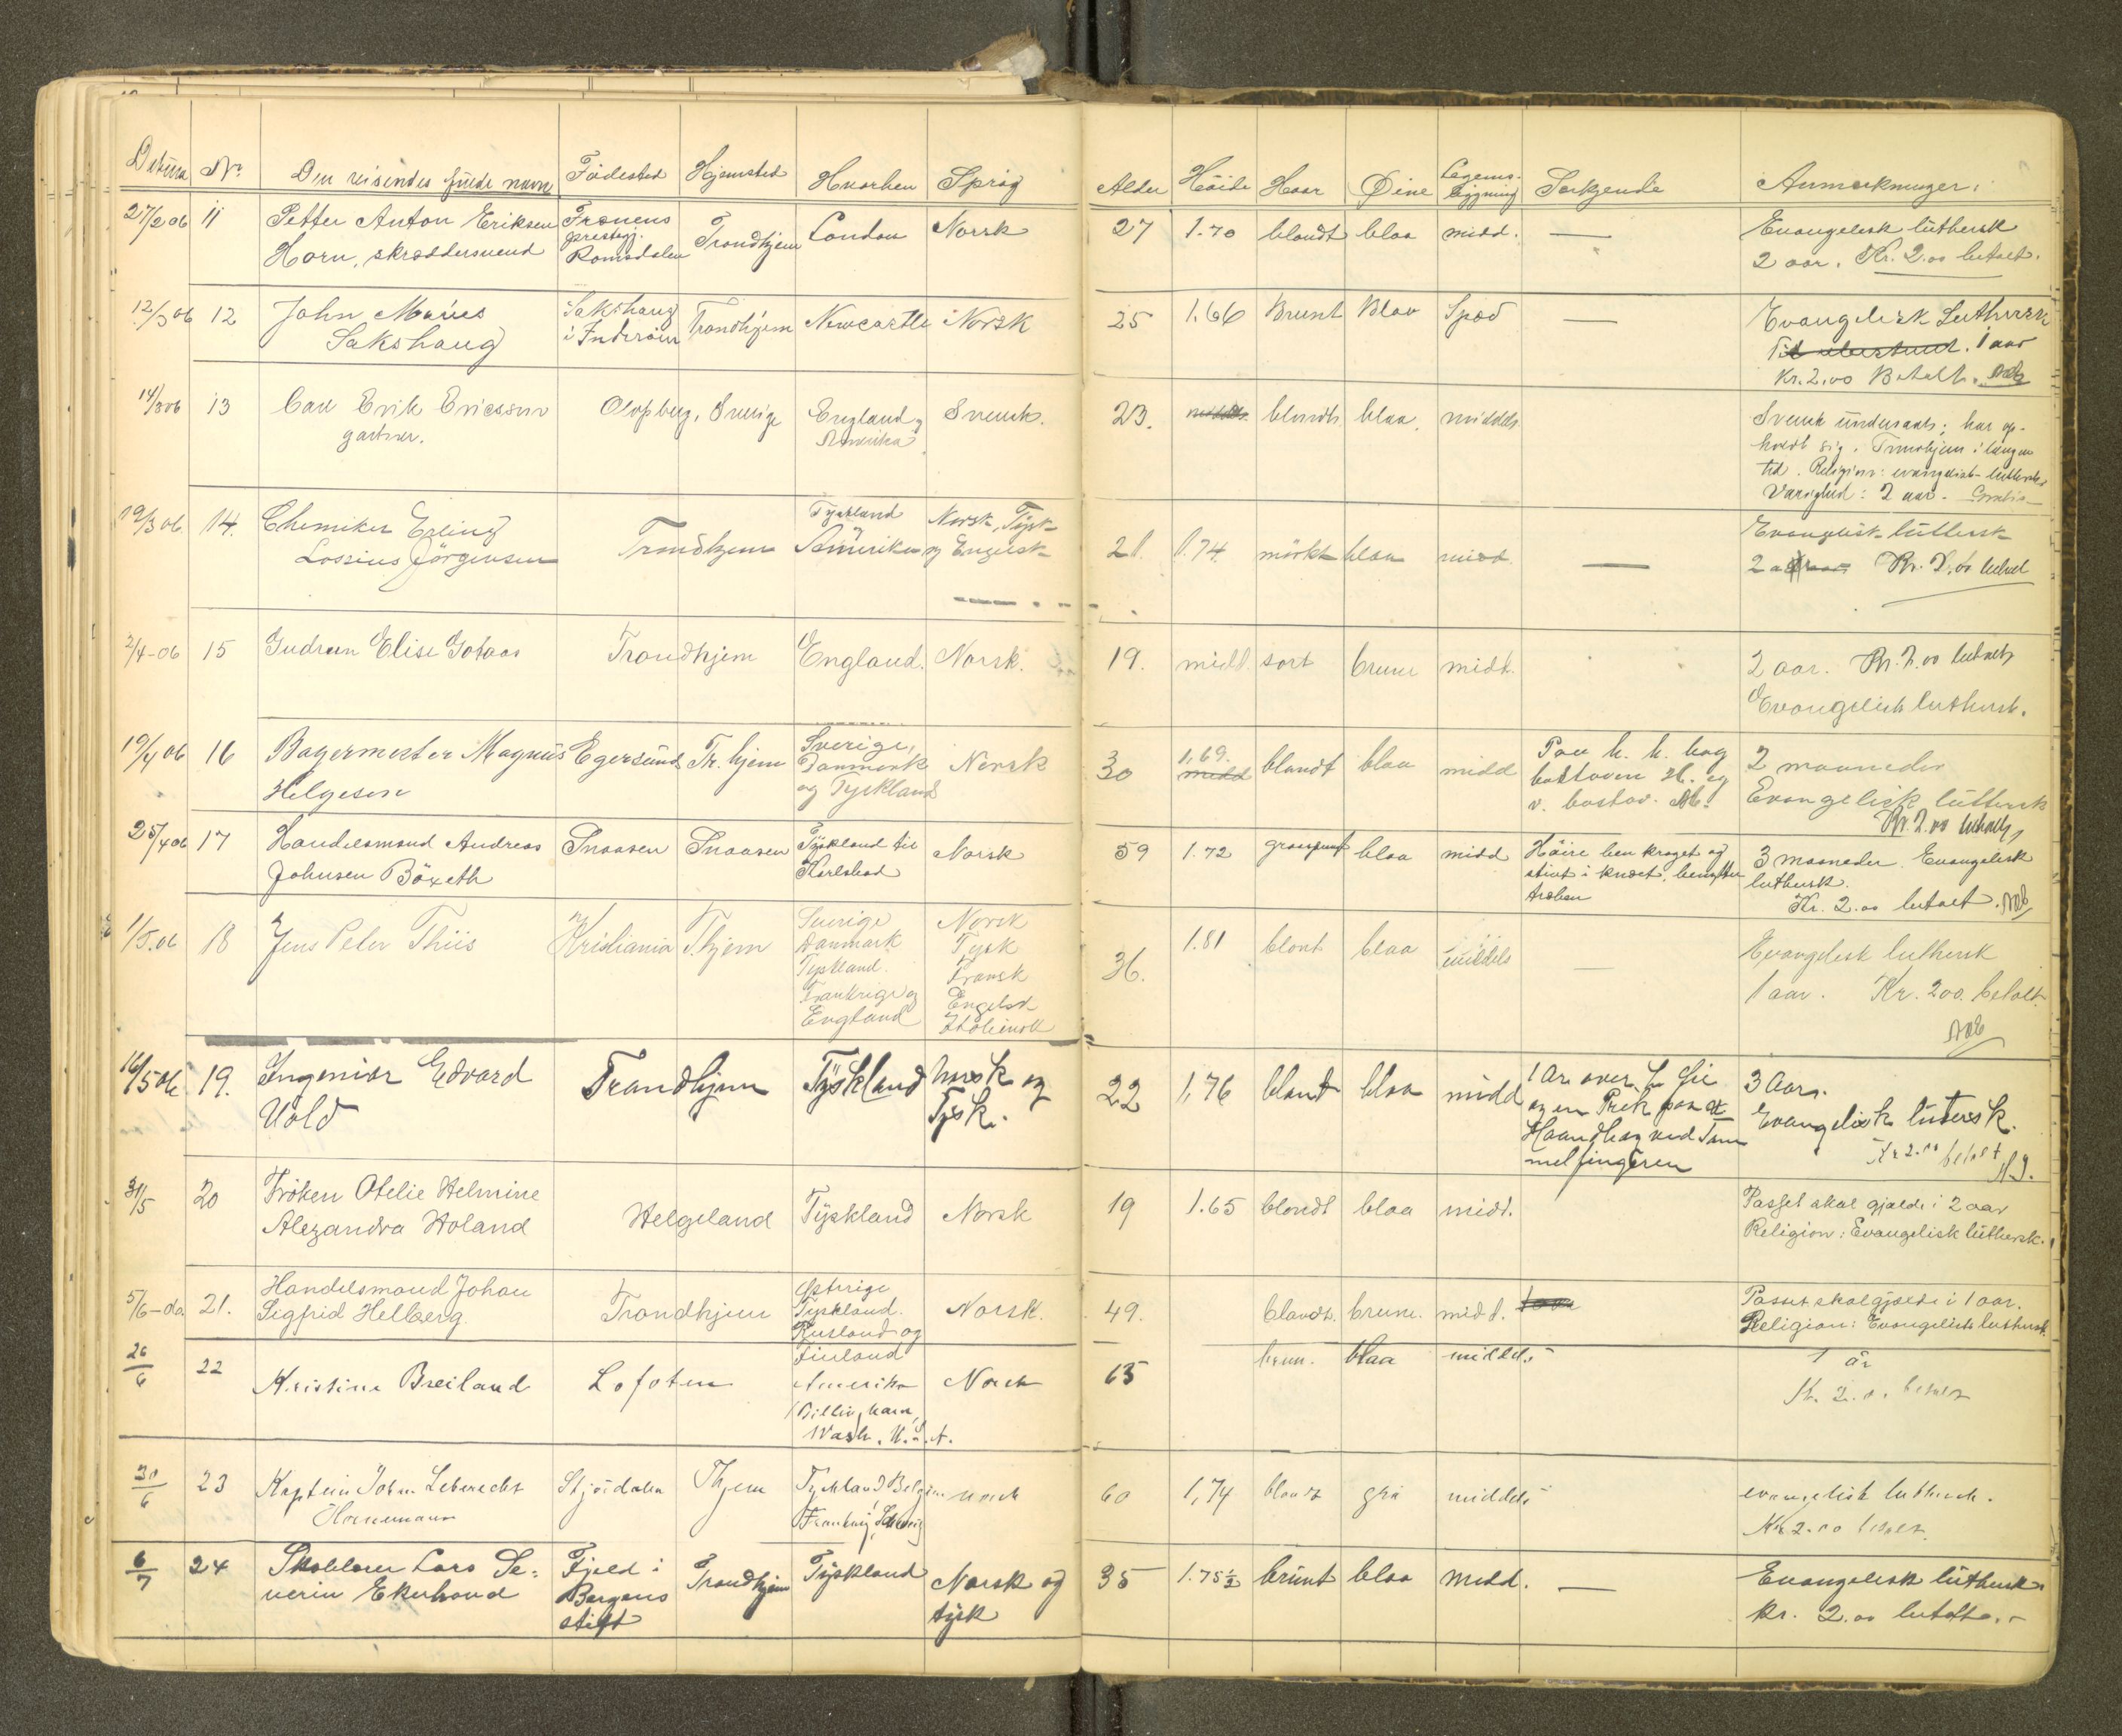 Datum No Den reisendes fulde navn Fødested Hjemsted Hvorhen Sprog Alder Höide Haar Øine Legems-bygning Særkjende Anmerkninger.
27/2 06 11 Petter Anton Eriksen Frænens Trondhjem London Norsk 27 1.70 blondt blaa midd. — Evangelisk luthersk
Horn, skræddersvend prestegj. Romsdalen 2 aar. Kr. 2.00 betalt.
12/3 06 12 John Marius Sakshaug Trondhjem Newcastle Norsk 25 1.66 Brunt Blaa Spæd — Evangelisk Luthersk
Sakshaug i Inderöen 1 aar
Kr. 2,00 Betalt.
14/3 06 13 Carl Erik Ericsson Sverige England og Svensk. 23. blondt blaa. middels Svensk undersaat; har op-
gartner. Amerika holdt sig i Trondhjem i længere
tid. Religion: evangelisk-luthersk
Varighed: 2 aar. Gratis
19/3 06. 14. Chemiker Erling Trondhjem Tyskland Norsk, Tysk 21. 1.74 mörkt blaa midd. — Evangelisk luthersk
Lossius Jörgensen Amerika og Engelsk 2 Kr. 2,00 betalt
2/4-06 15 Gudrun Elise Gotaas Trondhjem England. Norsk. 19. midd. sort brune midd. 2 aar. Kr. 2.00 betalt
Evangelisk luthersk.
19/4 06 16 Bagermester Magnus Egersund Tr.hjem Sverige, Norsk 30 1,69. blondt blaa midd 2 maaneder
Helgesen Danmark Evangelisk luthersk
og Tyskland Kr. 2.00 betalt,
25/4 06 17 Handelsmand Andreas Snaasen Snaasen Tyskland til Norsk 59 1.72 blaa midd Höire ben kroget og 3 maaneder. Evangelisk
Johnsen Böxeth Karlsbad stivt i knæet, benytter luthersk.
Kr. 2.00 betalt.
1/5.06 18 Jens Peter Thiis Kristiania T.hjem Sverige Norsk 36. 1.81 blont blaa middels — Evangelisk luthersk
Danmark Tysk
Tyskland. Fransk 1 aar. Kr. 200. betalt
Frankrige og Engelsk
England Italiensk
16/5 06 19. Ingeniör Edvard Trondhjem Tyskland norsk og 22 1,76 blont blaa midd 1 Ar over 3 Aar.
Uold Tysk. og en Prik paa Evangelisk lutersk.
Haandbag ved Tom
melfingeren Kr 2.00 betalt
31/5 20 Fröken Otelie Helmine Helgeland Tyskland Norsk 19 1.65 blondt blaa midd. Passet skal gjælde i 2 aar
Alexandra Holand Religion: Evangelisk luthersk.
5/6-do. 21. Handelsmand Johan Trondhjem Østerige Norsk. 49. blondt. brune. midd. Passet skal gjælde i 1 aar.
Sigfrid Hellberg. Tyskland. Religion: Evangelisk luthersk.
Rusland og
Finland
26/6 22 Kristine Breiland Lofoten Amerika Norsk brun. blaa middels 1 år
Wash. U.S.A. Kr. 2.0. betalt
30/6 23 Kaptein Johan Lebrecht Stjördalen Thjem Tyskland Belgien norsk 60 1,74 blondt grå middels evangelisk luthersk.
Hornemann Kr 2.00 betalt.
6/7 24 Lars Se- Fjeld i Trondhjem Tyskland Norsk og 35 1.75½ brünt blaa midd. — Evangelisk luthersk.
verin Ekerhovd Bergens tysk kr. 2.00 betalt.
stift